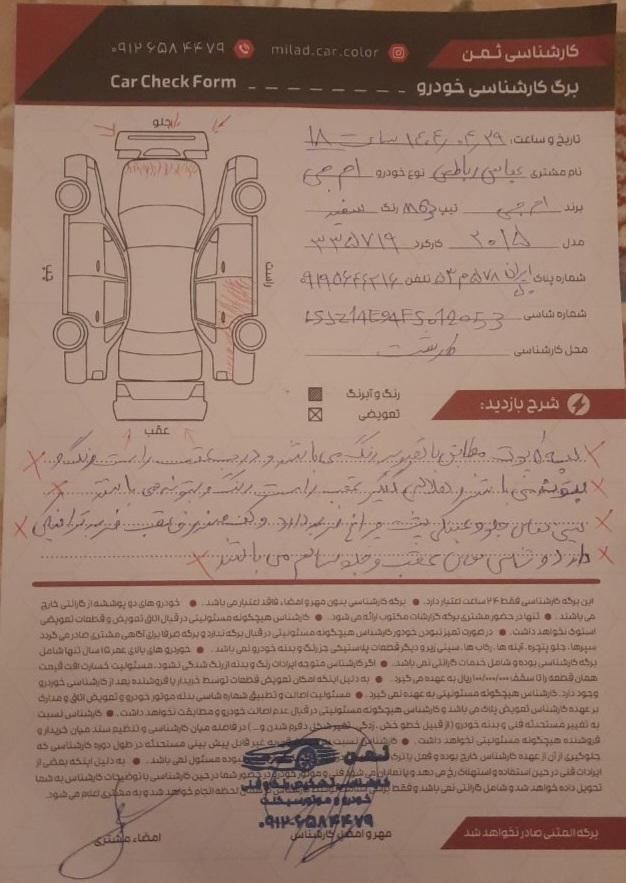 کارشناسی ثمن
milad.car.color
۰۹۱۲ ۶۵۸ ۴۴۷۹
برگ کارشناسی خودرو
Car Check Form
تاریخ و ساعت: ۱۴۰۴/۰۴/۲۹ ساعت ۱۸
نام مشتری عباسی رباطی نوع خودرو ام جی
برند ام جی تیپ MG3 رنگ سفید
مدل ۲۰۱۵ کارکرد ۳۳۵۷۱۹
شماره پلاک ایران تلفن
شماره شاسی
محل کارشناسی طرشت
جلو
چپ
راست
عقب
رنگ و آبرنگ
تعویضی
شرح بازدید:
مطابق با تصویر رنگ می باشد و درب عقب راست رنگ و
گلگیر عقب راست رنگ و بتونه می باشد
سینی جلو و چراغ ضربه دارد و کف صندوق عقب ضربه ترافیکی
دارد و شاسی های عقب و جلو سالم می باشند
این برگه کارشناسی فقط ۲۴ ساعت اعتبار دارد. ● برگه کارشناسی بدون مهر و امضاء فاقد اعتبار می باشد. ● خودرو های دو پوششه از گارانتی خارج
می باشند. ● تنها در حضور مشتری برگه گزارشات مکتوب ارائه می شود. ● کارشناس هیچگونه مسئولیتی در قبال اتاق تعویض و قطعات تعویضی
استوک نخواهد داشت. ● در صورت تمیز نبودن خودرو کارشناس هیچگونه مسئولیتی در قبال برگه ندارد و برگه صرفا برای آگاهی مشتری صادر می گردد
سپرها، جلو پنجره، آینه ها، رکاب ها، سینی زیر و دیگر قطعات پلاستیکی جز رنگ و بدنه خودرو نمی باشد. ● خودرو های بالای عمر ۱۵ سال تنها شامل
برگه کارشناسی بوده و شامل خدمات گارانتی نمی باشد. ● اگر کارشناس متوجه ایرادات رنگ و بدنه از رنگ شدگی نشود، مسئولیت خسارت افت قیمت
همان قطعه را تا سقف ریال به عهده می گیرد. ● به دلیل اینکه امکان تعویض قطعات توسط خریدار یا فروشنده بعد از کارشناسی خودرو
وجود دارد، کارشناس هیچگونه مسئولیتی به عهده نمی گیرد. ● مسئولیت اصالت و تطبیق شماره شاسی بدنه موتور خودرو و تعویض اتاق و مدارک
بر عهده کارشناس تعویض پلاک می باشد و کارشناس هیچگونه مسئولیتی در قبال عدم اصالت خودرو و مطابقت نخواهد داشت. ● کارشناس نسبت
به تغییر مستحدثه فنی و بدنه خودرو (از قبیل خط و خش، زدگی، تغییر شکل، دفرم شدن و...) در فاصله میان کارشناسی و تنظیم سند میان خریدار و
فروشنده هیچگونه مسئولیتی نخواهد داشت. ● کارشناس نسبت غیر قابل پیش بینی مستحدثه در طول دوره کارشناسی که
جلوگیری از آن از عهده کارشناس خارج بوده و فعل یا ترک بوده مسئول نمی باشد. ● به دلیل اینکه بعضی از
ایرادات فنی در حین استفاده و استهلاک رخ می دهد و یا نمایان می شود فنی و موتور خودرو در حضور شما در حین کارشناسی با توضیحات کارشناس به شما
تحویل داده خواهد شد و شامل گارانتی نمی باشد و فقط لحظه انجام خواهد شد و به مشتری اعلام می شود.
ثمن
خودرو و موتورسیکلت
۰۹۱۲-۶۵۸۴۴۷۹
برگه المثنی صادر نخواهد شد
مهر و امضاء کارشناس
امضاء مشتری